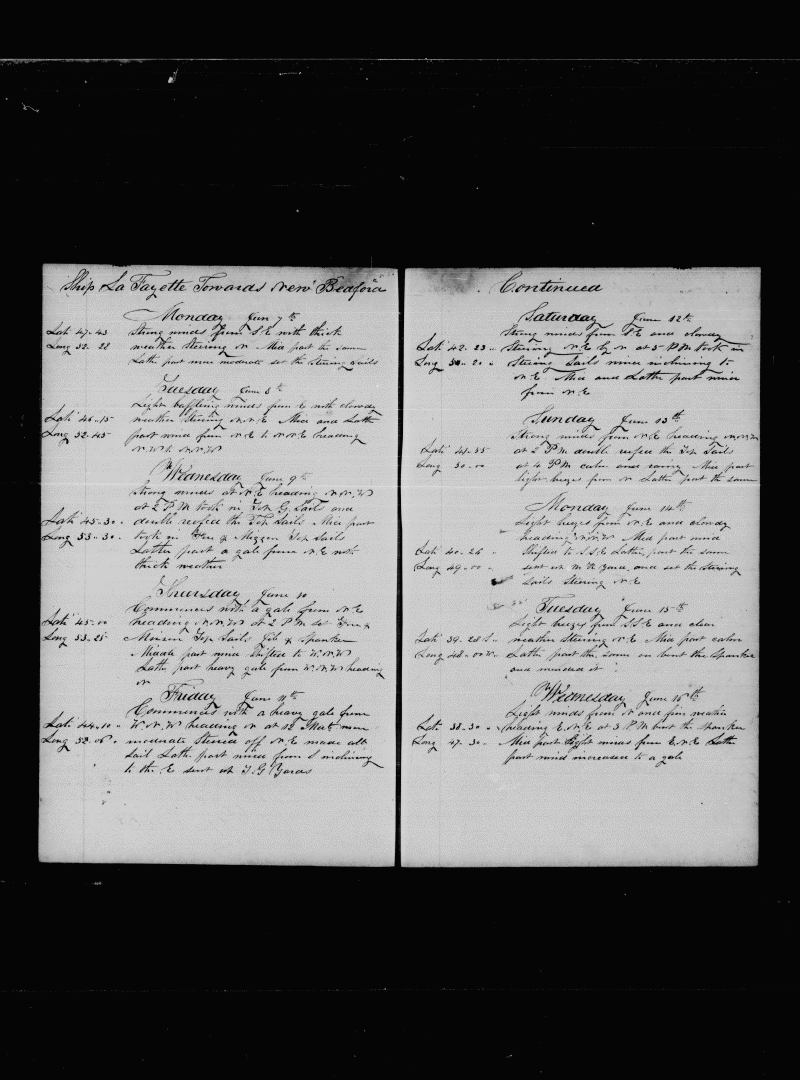 Ship La Fayette Towards New Bedford
Monday June 7th
Lati 47-43 Strong winds from S.E with thick
Long 52-28 weather Stering N Mid part the same
Latter part more moderate set the Stering Sails
Tuesday June 8th
Light baffling winds from E with clowdy
Lati 46-15 weather Stering N.N.E Mid and Latter
Long 52-45 part wind from N.E to N.N.E heading
N.W to N.N.W
Wednesday June 9th
Strong winds at N.E heading N.N.W
at 2 P M took in Top G. Sails and
Lati 45-30 double reefed the Top Sails Mid part
Long 53-30 took in Fore & Mizzen Top Sails
Latter part a gale from N.E with
thick weather
Thursday June 10
Commences with a gale from N.E
Lati 45-00 heading N.N.W at 2 P M set Fore &
Long 53-25 Mizzen Top Sails Jib & Spanker
Middle part wind Shifted to W.N.W
Latter part heavy gale from W.N.W heading
N
Friday June 11th
Commences with a heavy gale from
Lati 44-10 W.N.W heading N at 12 Mid more
Long 52-06 moderate Stered off N.E made all
Sail Latter part wind from S inclining
to the E sent up T.G Yards
Continued
Saturday June 12th
Strong winds from S.E and clowdy
Lati 42-23 Stering N.E by N at 5 P M took in
Long 50-20 Stering Sails wind inclining to
N.E Mid and Latter part wind
from N.E
Sunday June 13th
Strong winds from N.E heading N.N.W
Lati 41-35 at 2 P.M double reefed the Top Sails
Long 50-00 at 4 P M calm and rainy Mid part
light brezes from N Latter part the same
Monday June 14th
Light brezes from N.E and clowdy
heading N.N.W Mid part wind
Lati 40-26 Shifted to S.S.E Latter part the same
Long 49-00 sent up M R Yard and set the Stering
Sails Stering N.E
Tuesday June 15th
Light brezes from S.S.E and clear
Lati 39-28 S weather Stering N.E Mid part calm
Long 48-00 W Latter part the same un bent the Spanker
and mended it
Wednesday June 16th
Light winds from N and fine weather
Lati 38-30 heading E.N.E at 3 P M bent the Spanker
Long 47-30 Mid part Light winds from E.N.E Latter
part wind increased to a gale